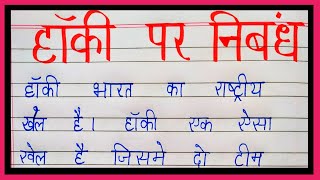 हॉकी पर निबंध
हॉकी भारत का राष्ट्रीय
खेल है। हॉकी एक ऐसा
खेल है जिसमे दो टीम